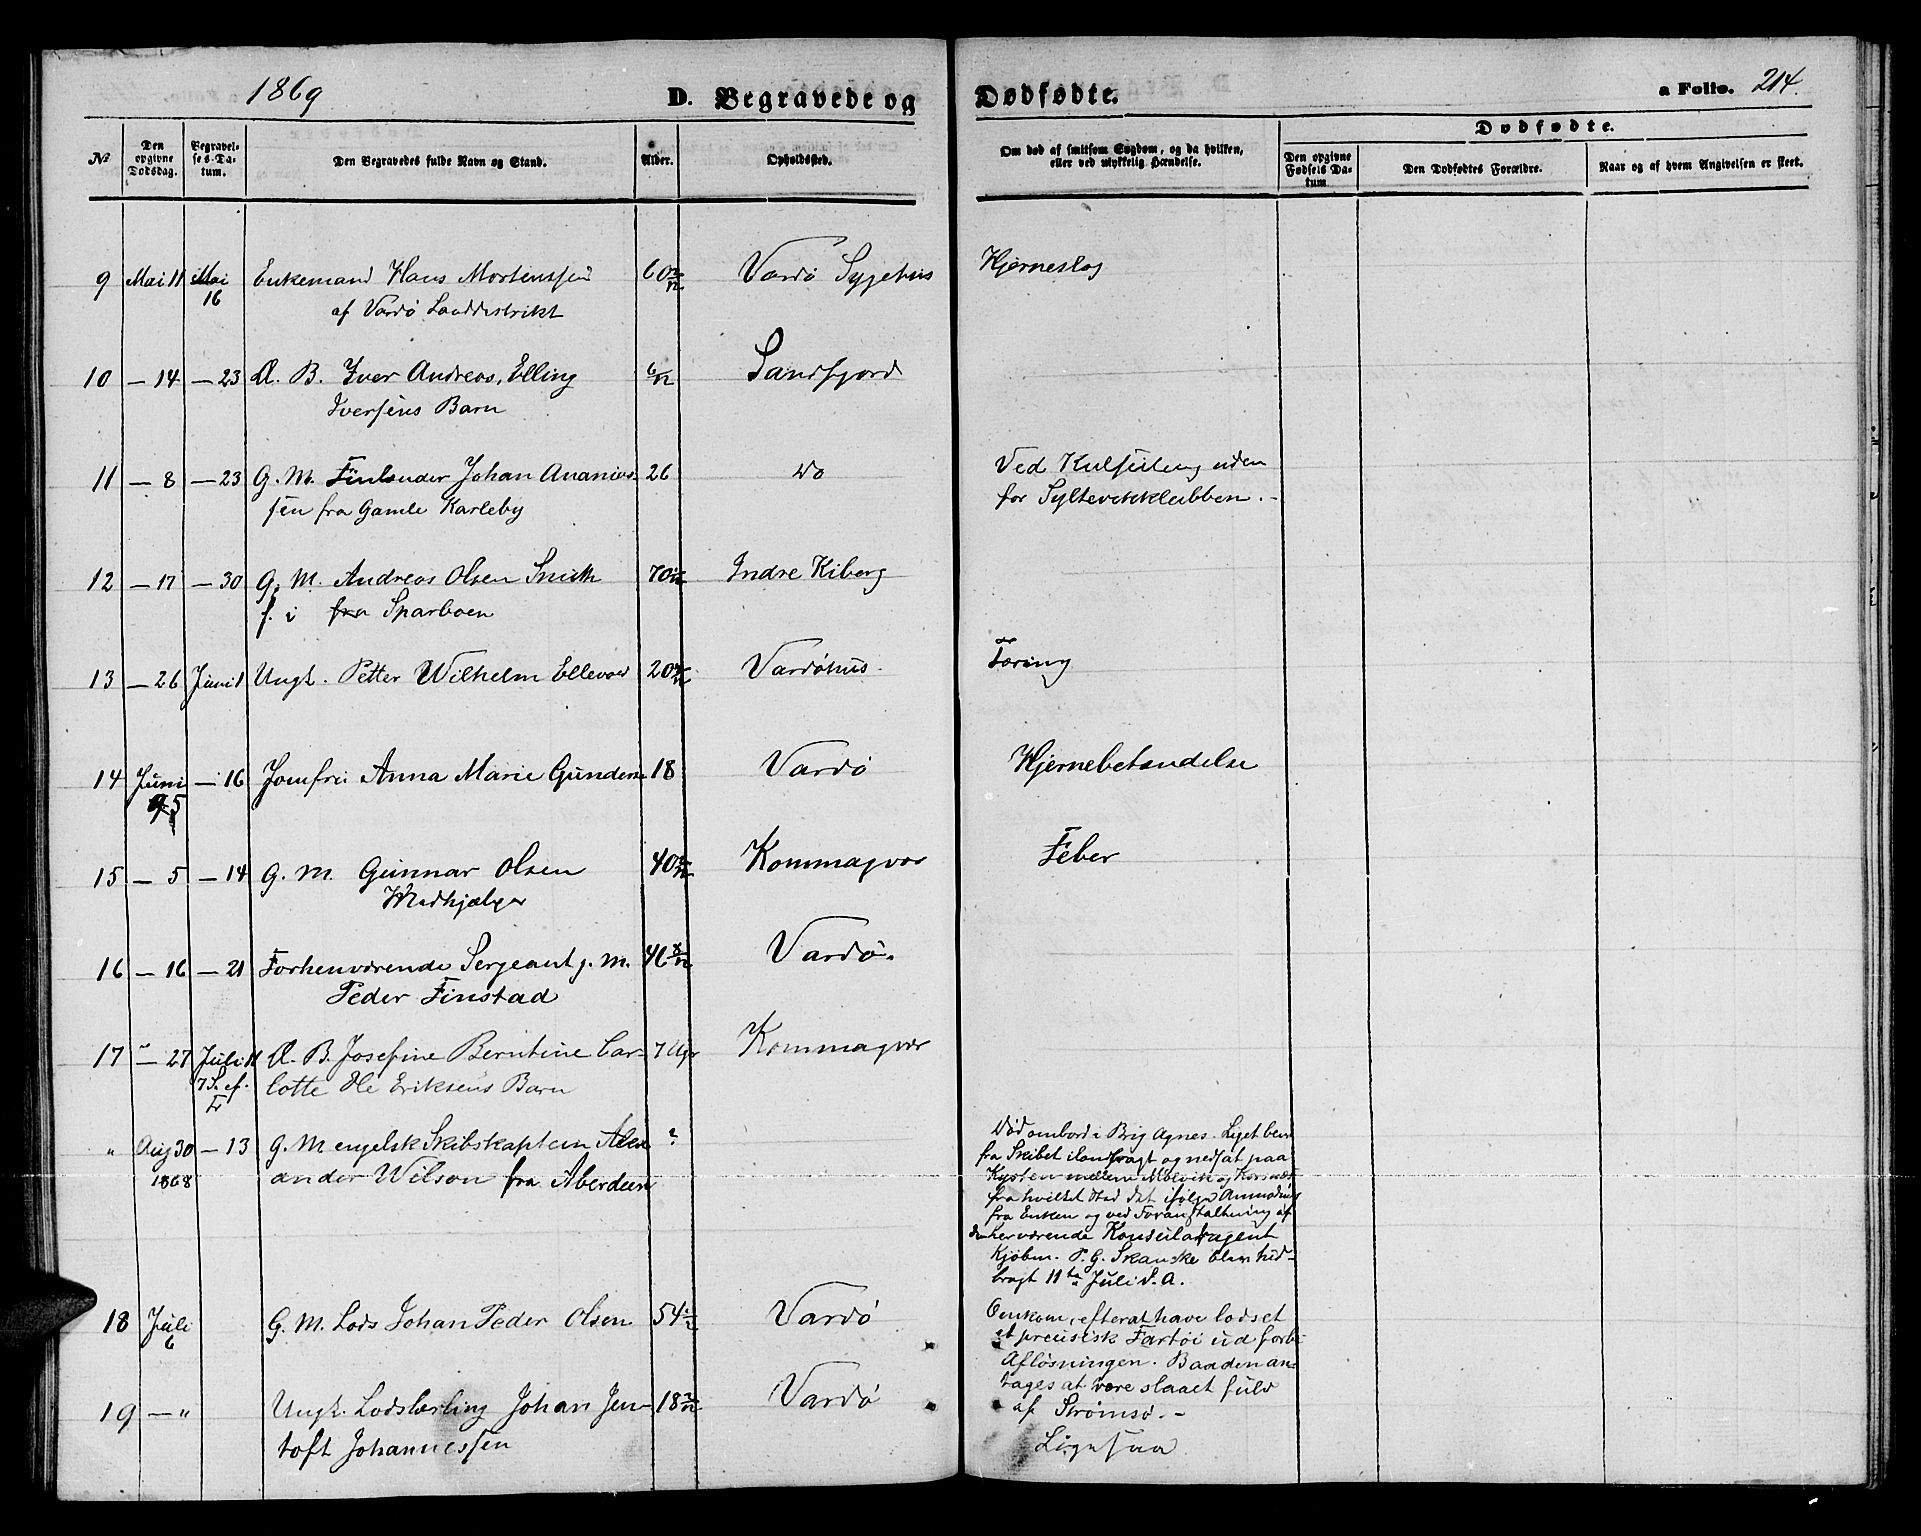 1869
D. Begravede og
Dødfødte.
a Folio. 214.
Dødfødte.
No
Den opgivne Dødsdag.
Begravelses-Datum.
Den Begravedes fulde Navn og Stand.
Alder.
Opholdssted.
Om død af smitsom Sygdom, og da hvilken,
eller ved ulykkelig Hændelse.
Den opgivne Fødsels Datum
Den Dødfødtes Forældre.
Naar og af hvem Angivelsen er skeet.
9 Mai 11 Mai 16 Enkemand Hans Mortenssen 60 Vardø Sygehus Hjerneslag
af Vardø Landdistrikt
10 — 14 — 23 D. B. Iver Andreas, Elling 6/12 Sandfjord
Iversens Barn
11 — 8 — 23 G. M. Finlænder Johan Ananias- 26 Do Ved Kulseiling uden
sen fra Gamle Karleby for Syltevikklubben. -
12 — 17 — 30 G. M. Andreas Olsen Smith 70 Indre Kiberg
f. i fra Sparboen
13 — 26 Juni 1 Ungk. Petter Wilhelm Ellevold 20 Vardøhus. Tæring
14 Juni 5 — 16 Jomfru Anna Marie Gundersen 18 Vardø Hjernebetændelse
15 — 5 — 14 G. M. Gunnar Olsen 40 Kommagvær Feber
Medhjælper
16 — 16 — 21 Forhenværende Sergeant g. M. 46 Vardø.
Peder Finstad
17 — 27 Juli 11 D. B. Josefine Berntine Car- 7 Uger Kommagvær
7 S. ef. Tr lotte Ole Eriksens Barn
" Aug 30 — 13 G. M engelsk Skibskaptein Alex ?
1868 ander Wilson fra Aberdeen
Død ombord i Brig Agnes. Liget blev
fra Skibet ilandbragt og nedsat paa
Kysten mellem Molvik og Kornæs
fra hvilket Sted det ifølge Anmodning
fra Enken og ved Foranstaltning af
den herværende Konsularagent
Kjøbm. P. G. Skanske blev hid-
bragt 11te Juli d. A.
18 Juli 6 G. M. Lods Johan Peder Olsen 54 Vardø
Omkom, efter at have lodset
et preusisk Fartøi ud forbi
Afløsningen. Baaden an-
tages at være slaaet fuld
af Strømsø. -
19 — " Ungk. Lodslærling Johan Jen- 18 Vardø
toft Johannessen Ligesaa